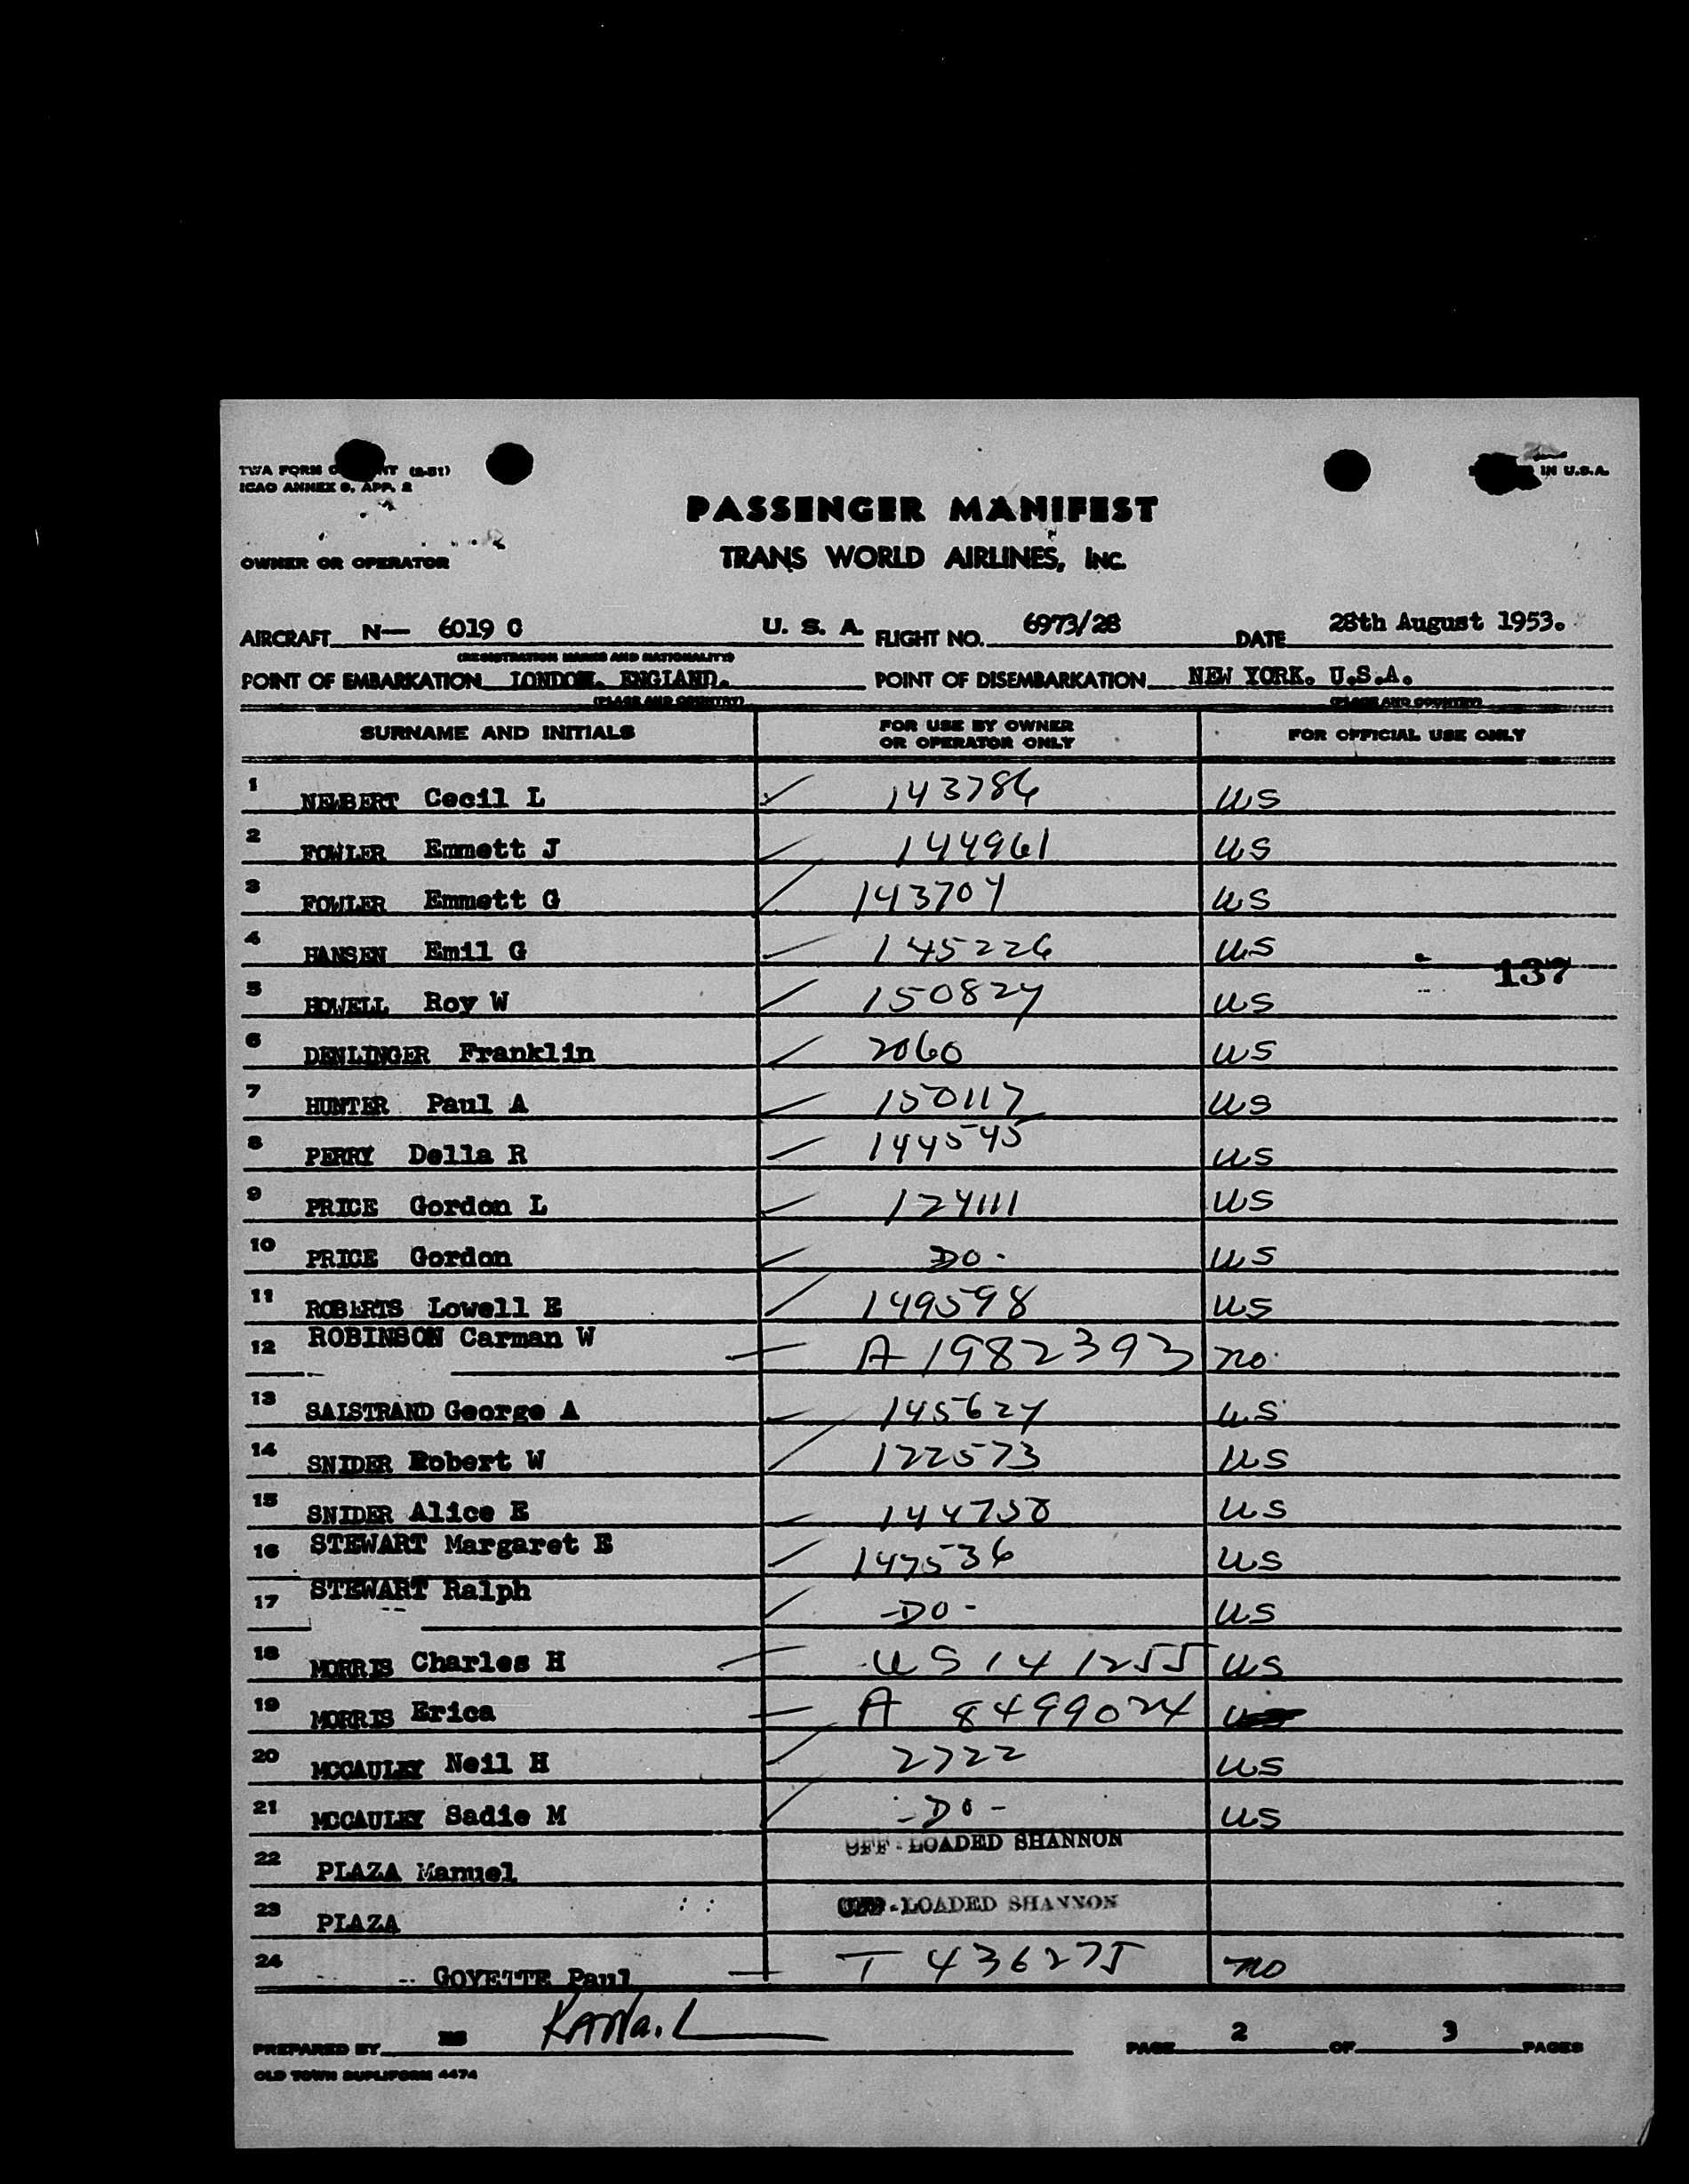 TWA FORM (2-51)
ICAO ANNEX 9, APP. 2
IN U.S.A.
PASSENGER MANIFEST
OWNER OR OPERATOR TRANS WORLD AIRLINES, INC.
AIRCRAFT N— 6019 C U. S. A. FLIGHT NO. 6973/28 DATE 28th August 1953.
(REGISTRATION MARKS AND NATIONALITY)
POINT OF EMBARKATION LONDON. ENGLAND. POINT OF DISEMBARKATION NEW YORK. U.S.A.
(PLACE AND COUNTRY) (PLACE AND COUNTRY)
SURNAME AND INITIALS FOR USE BY OWNER OR OPERATOR ONLY FOR OFFICIAL USE ONLY
1 NEWBERT Cecil L 143786 US
2 FOWLER Emmett J 144961 US
3 FOWLER Emmett G 143704 US
4 HANSEN Emil G 145226 US
137
5 HOWELL Roy W 150824 US
6 DENLINGER Franklin 2060 US
7 HUNTER Paul A 150117 US
8 PERRY Della R 144545 US
9 PRICE Gordon L 124111 US
10 PRICE Gordon DO - US
11 ROBERTS Lowell E 149598 US
12 ROBINSON Carman W A 1982393 no
13 SALSTRAND George A 145624 US
14 SNIDER Robert W 122573 US
15 SNIDER Alice E 144758 US
16 STEWART Margaret E 147536 US
17 STEWART Ralph -DO- US
18 MORRIS Charles H US 141255 US
19 MORRIS Erica A 8499024
20 MCCAULEY Neil H 2722 US
21 MCCAULEY Sadie M -DO- US
22 PLAZA Manuel OFF-LOADED SHANNON
23 PLAZA OFF-LOADED SHANNON
24 GOYETTE Paul T 436275 no
PREPARED BY PAGE 2 OF 3 PAGES
OLD TOWN DUPLIFORM 4474